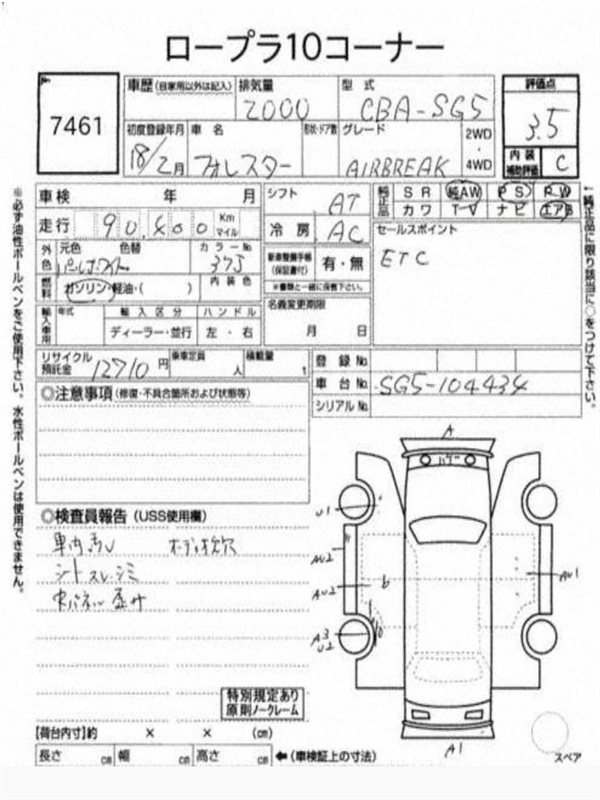 ロープラ10コーナー
No 7461
車歴(自家用以外は記入) 排気量 2000 型式 CBA-SG5 評価点 3.5
初度登録年月 18/2月 車名 フォレスター 形状・ドア数 グレード AIRBREAK 2WD・4WD 内装補助評価 C
車検 年 月 シフト AT 純正品 SR 純AW PS PW
カワ TV ナビ エアB
走行 90,400 Km マイル 冷房 AC セールスポイント
ETC
外色 元色 色替 カラーNo 37J 新車整備手帳(保証書付) 有・無
※書類と一緒に保管下さい。
燃料 ガソリン・軽油・( ) 内装色 名義変更期限
月 日
輸入車用 年式 輸入区分 ハンドル
ディーラー・並行 左・右
リサイクル預託金 12710円 乗車定員 人 積載量 t 登録No.
車台No. SG5-104434
シリアルNo.
◎注意事項(修復・不具合箇所および状態等)
◎検査員報告(USS使用欄)
特別規定あり
原則ノークレーム
【荷台内寸】約 × × (cm)
長さ cm 幅 cm 高さ cm ←(車検証上の寸法)
A
U1
AU2
AU2
A3
U2
b
AU1
A1
スペア
※必ず油性ボールペンをご使用下さい。水性ボールペンは使用できません。
↑純正品に限り該当に○をつけて下さい。